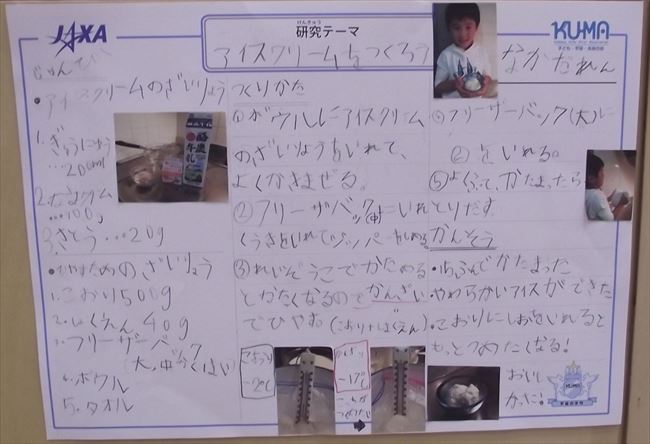 JAXA
けんきゅう
研究テーマ
アイスクリームをつくろう
KU-MA
なかだれん
じゅんび
・アイスクリームのざいりょう
1. ぎゅうにゅう
…200ml
2. なまクリーム
…100g
3. さとう…20g
・ひやすためのざいりょう
1. こおり500g
2. しょくえん40g
3. フリーザーバック
4. ボウル
5. タオル
つくりかた
①ボウルにアイスクリーム
のざいりょうをいれて、
よくかきまぜる。
②フリーザバック(中)にいれ
くうきをいれてジッパーをしめる
③れいぞうこでかためる
とかたくなるのでかんざい
でひやす (こおり+しょくえん)
こおり
-2℃
かんざい
-17℃
こっちが
つめたい
④フリーザーバック(大)に
②をいれる。
⑤よくふって、かたまったら
とりだす
かんそう
・15ふんでかたまった
やわらかいアイスができた
・こおりにしおをいれると
もっとつめたくなる!
おいし
かった!